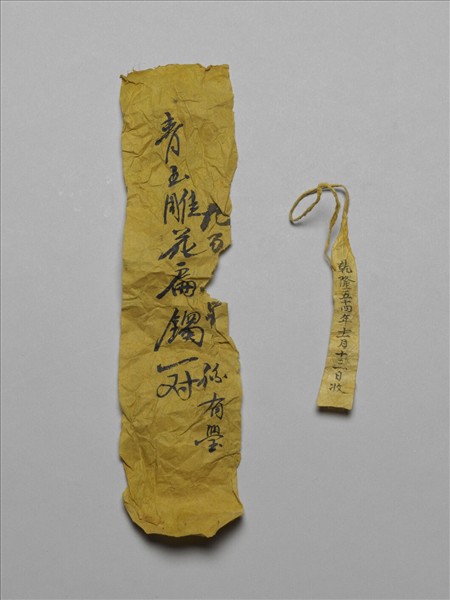 青玉雕花扁鐲一对
九百
有璺
乾隆五十四年十二月十三日收